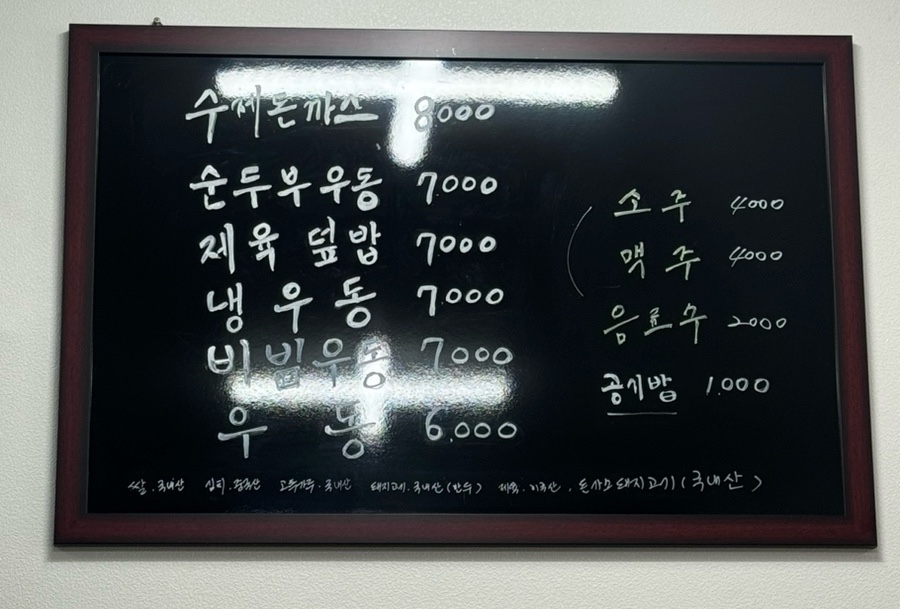 수제돈까스 8000
순두부우동 7.000
제육 덮밥 7000
냉 우 동 7.000
비빔우동 7000
우 동 6.000
소 주 4000
맥 주 4000
음료수 2000
공기밥 1.000
쌀.국내산 김치.중국산 고추가루.국내산 돼지고기.국내산(만두) 제육.미국산, 돈까스돼지고기(국내산)